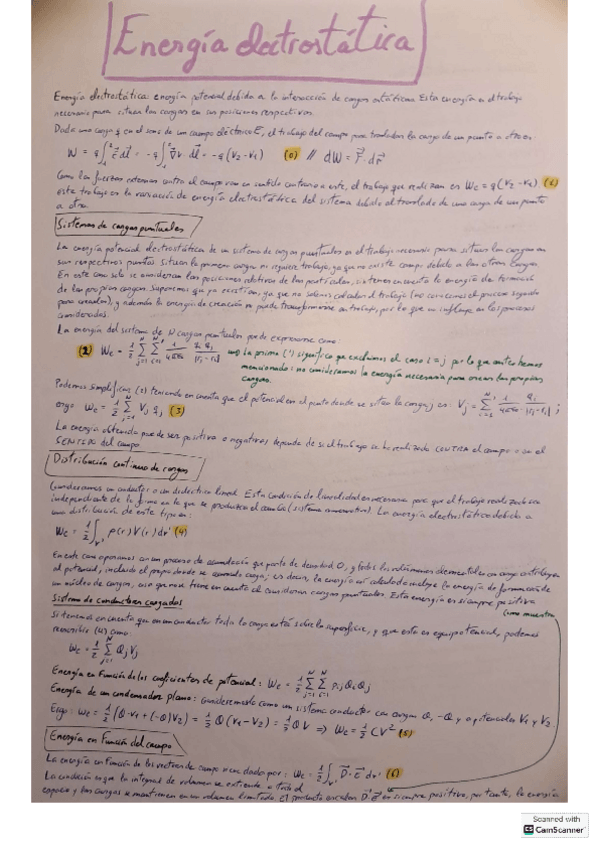 Energía electrostática
Energía electrostática: energía potencial debida a la interacción de cargas estáticas. Esta energía es el trabajo
necesario para situar las cargas en sus posiciones respectivas.
Dada una carga q en el seno de un campo eléctrico E, el trabajo del campo para trasladar la carga de un punto a otro es:
W = q∫₁² E⃗ dl⃗ = -q∫₁² ∇⃗V dl⃗ = -q(V₂-V₁) (0) // dW = F⃗ · dr⃗
Como las fuerzas externas contra el campo van en sentido contrario a este, el trabajo que realizan es We = q(V₂-V₁) (1)
este trabajo es la variación de energía electrostática del sistema debido al traslado de una carga de un punto
a otro.
Sistemas de cargas puntuales
La energía potencial electrostática de un sistema de cargas puntuales es el trabajo necesario para situar las cargas en
sus respectivos puntos. Situar la primera carga no requiere trabajo, ya que no existe campo debido a las otras cargas.
En este caso solo se consideran las posiciones relativas de las partículas, no teniendo en cuenta la energía de formación
de las propias cargas. Suponemos que ya existían, ya que no sabemos calcular el trabajo (no conocemos el proceso seguido
para crearlas), y además la energía de creación no puede transformarse en trabajo, por lo que no influye en los procesos
considerados.
La energía del sistema de N cargas puntuales puede expresarse como:
(2) We = 1/2 Σ Σ' 1/4πε₀ qⱼqᵢ/|rᵢ-rⱼ| La prima (') significa que excluimos el caso i=j por lo que antes hemos
mencionado: no consideramos la energía necesaria para crear las propias
cargas.
Podemos simplificar (2) teniendo en cuenta que el potencial en el punto donde se sitúa la carga j es: Vⱼ = Σ' 1/4πε₀ qᵢ/|rᵢ-rⱼ| ;
ergo We = 1/2 Σ Vⱼ qⱼ (3)
La energía obtenida puede ser positiva o negativa, depende de si el trabajo se ha realizado CONTRA el campo o en el
SENTIDO del campo.
Distribución continua de cargas
Consideramos un conductor o un dieléctrico lineal. Esta condición de linealidad es necesaria para que el trabajo realizado sea
independiente de la forma en la que se produzca el cambio (sistema conservativo). La energía electrostática debido a
una distribución de este tipo es:
We = 1/2 ∫v' ρ(r) V(r) dv' (4)
En este caso operamos con un proceso de acumulación que parte de densidad 0, y todos los volúmenes elementales con carga contribuyen
al potencial, incluido el propio donde se acumula carga; es decir, la energía así calculada incluye la energía de formación de
un núcleo de cargas, cosa que no se tiene en cuenta al considerar cargas puntuales. Esta energía es siempre positiva
como muestra
Sistema de conductores cargados
Si tenemos en cuenta que en un conductor toda la carga está sobre la superficie, y que esta es equipotencial, podemos
reescribir (4) como:
We = 1/2 Σ QⱼVⱼ
Energía en Función de los coeficientes de potencial: We = 1/2 Σ Σ pᵢⱼ Qᵢ Qⱼ
Energía de un condensador plano: considerémoslo como un sistema conductor con cargas Q, -Q y a potenciales V₁ y V₂
Ergo: We = 1/2 (Q·V₁+(-Q)V₂) = 1/2 Q(V₁-V₂) = 1/2 QV ⇒ We = 1/2 CV² (5)
Energía en Función del campo
La energía en Función de los vectores de campo viene dada por: We = 1/2 ∫v' D⃗ · E⃗ dv' (6)
La condición es que la integral de volumen se extienda a todo el
espacio y las cargas se mantienen en un volumen limitado. El producto escalar D⃗·E⃗ es siempre positivo, por tanto, la energía
Scanned with
CamScanner